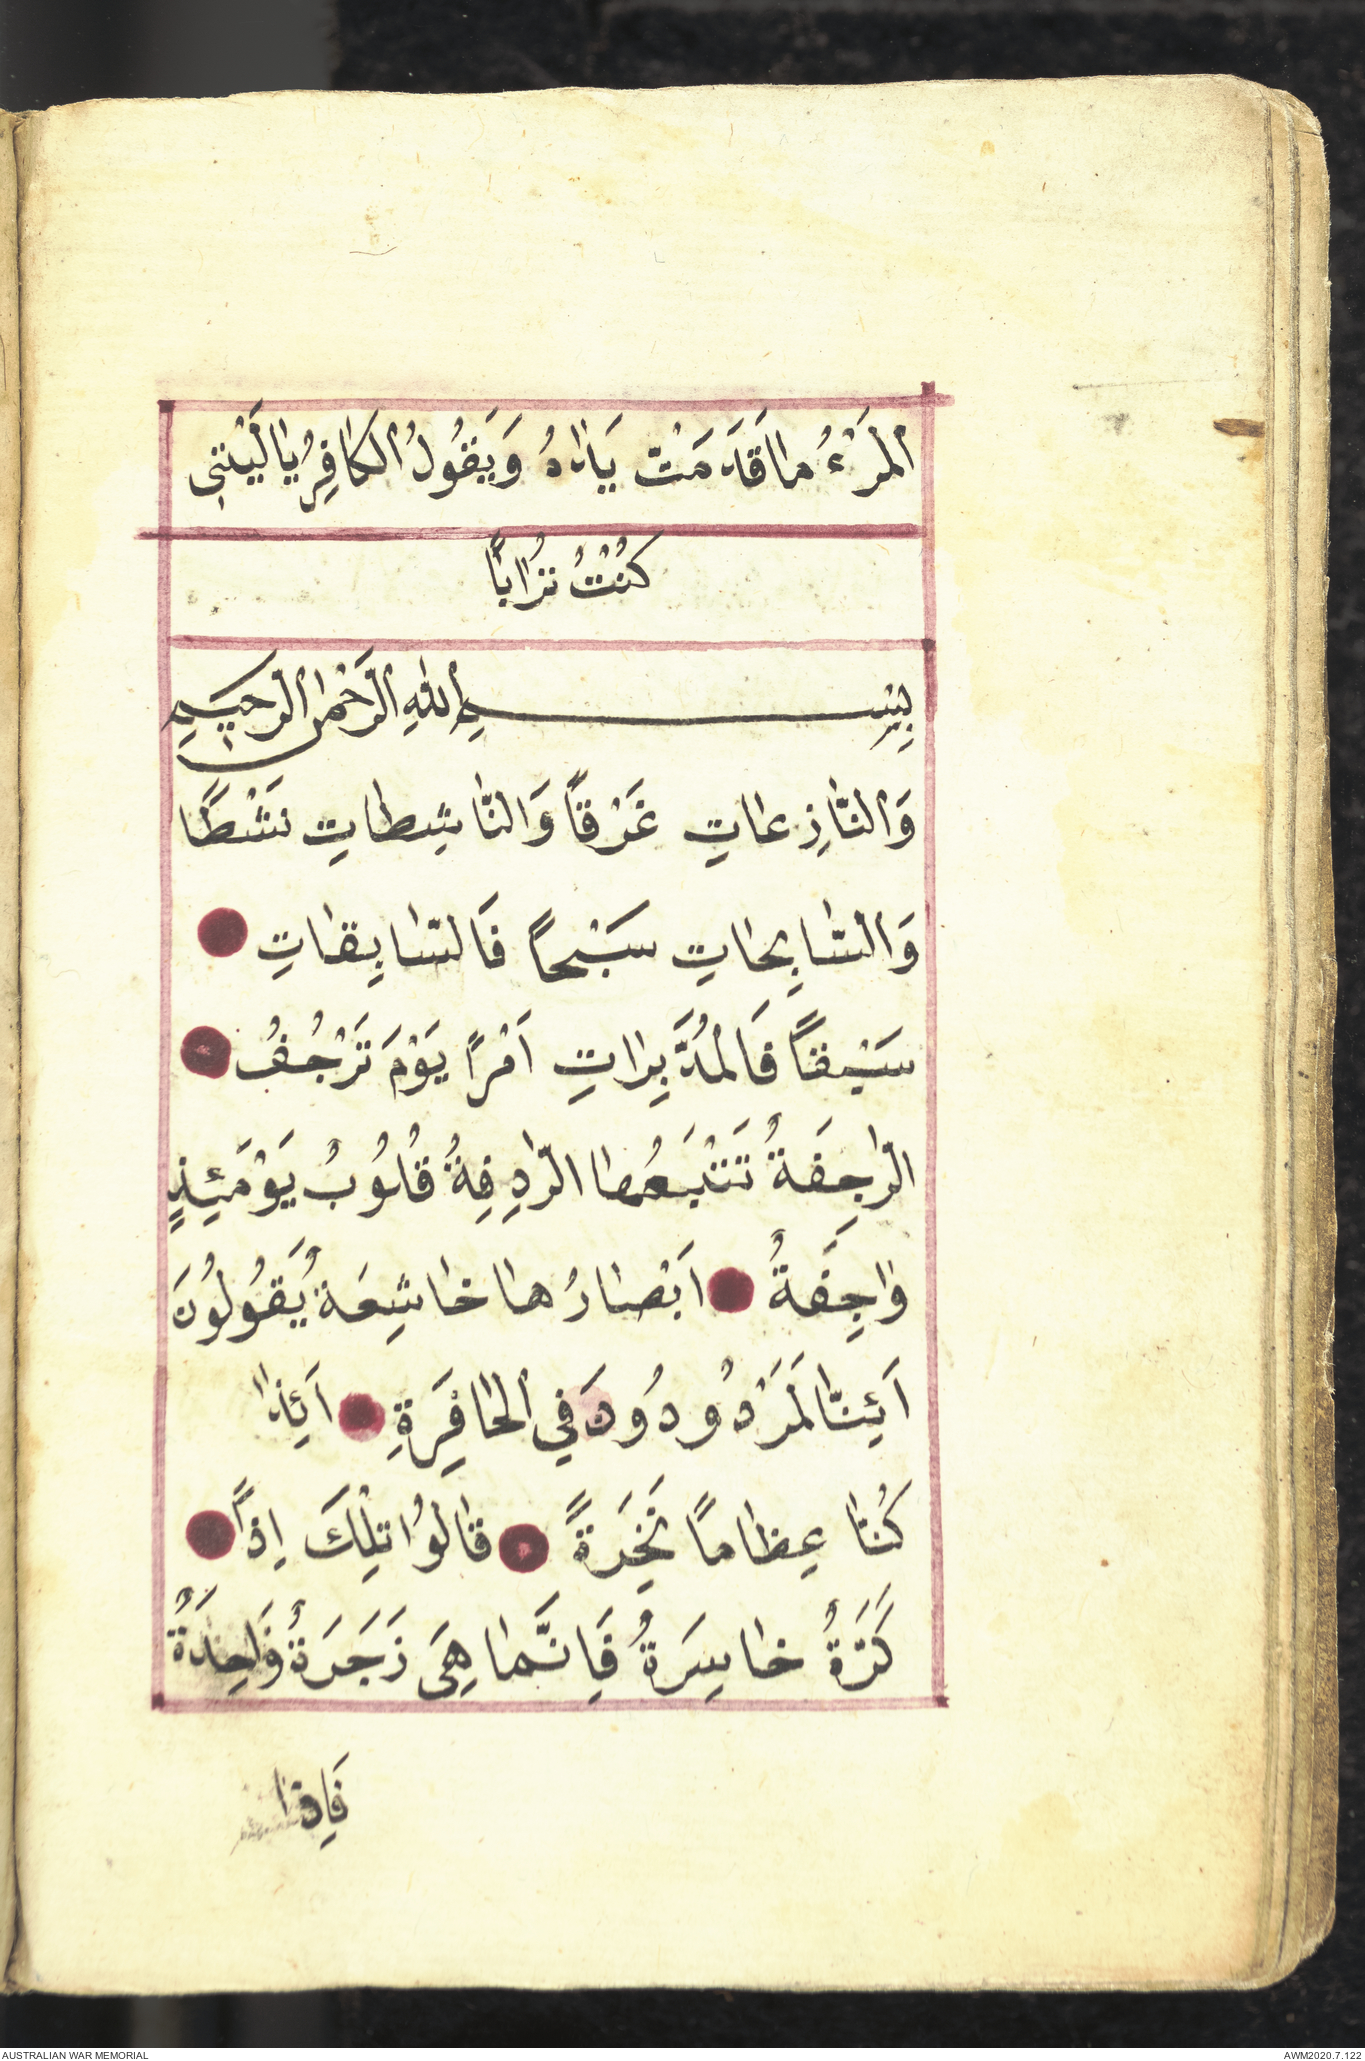 اَلْمَرْءُ مَا قَدَّمَتْ يَدَاهُ وَيَقُولُ الْكَافِرُ يَا لَيْتَنِي
كُنْتُ تُرَابًا
بِسْمِ اللهِ الرَّحْمٰنِ الرَّحِيمِ
وَالنَّازِعَاتِ غَرْقًا وَالنَّاشِطَاتِ نَشْطًا
وَالسَّابِحَاتِ سَبْحًا فَالسَّابِقَاتِ
سَبْقًا فَالْمُدَبِّرَاتِ اَمْرًا يَوْمَ تَرْجُفُ
الرَّاجِفَةُ تَتْبَعُهَا الرَّادِفَةُ قُلُوبٌ يَوْمَئِذٍ
وَاجِفَةٌ اَبْصَارُهَا خَاشِعَةٌ يَقُولُونَ
اَئِنَّا لَمَرْدُودُونَ فِي الْحَافِرَةِ اَئِذَا
كُنَّا عِظَامًا نَخِرَةً قَالُوا تِلْكَ اِذًا
كَرَّةٌ خَاسِرَةٌ فَاِنَّمَا هِيَ زَجْرَةٌ وَاحِدَةٌ
فَاِذَا
AUSTRALIAN WAR MEMORIAL
AWM2020.7.122